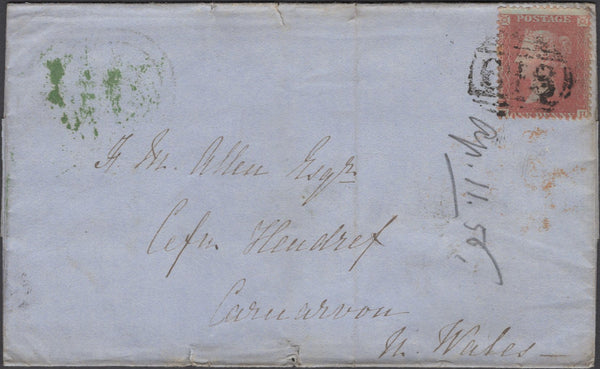 POSTAGE
ONE PENNY
Ap. 11. 56
H. M. Allen Esqr.
Cefn Hendref
Carnarvon
N. Wales